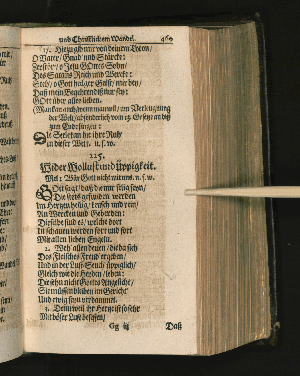 und Christlichem Wandel. 469
15. Hiezu gib mir von deinem Vaten/
O Vater/ Gnad und Stärcke:
Zerstör/ o Jesu GOttes Sohn/
Des Satans Reich und Wercke:
Steh/ o Gott heilger Geist/ mir bey/
Daß mein Begehren diß nur sey:
GOtt über alles lieben.
Man kan auch/ wenn man will/ zur Verleugnung
der Welt/ absonderlich vom 13. Gesetz an diß
zum Ende singen:
Die Seele kan hie ihre Ruh/
In dieser Welt. u. s. w.
115.
Wider Wollust und üppigkeit.
Mel: Wär Gott nicht mit uns. u. s. w.
GOtt sagt/ daß die nur selig seyn/
Die stets gefunden werden
Im Hertzen heilig/ keusch und rein/
An Wercken und Geberden:
Dieselbe sind es/ welche dort
Ihn schauen werden fort und fort
Mit allen lieben Engeln.
2. Weh allen denen/ die da sich
Des Fleisches Freud ergeben/
Und in der Lust-Seuch üppiglich/
Gleich wie die Heyden/ leben:
Die sehn nicht Gottes Angesicht/
Sie müssen bleiben im Gericht/
Und ewig seyn verdammet.
3. Denn weil ihr Hertz ist so sehr
Mit böser Lust besessen/
Gg iij Daß